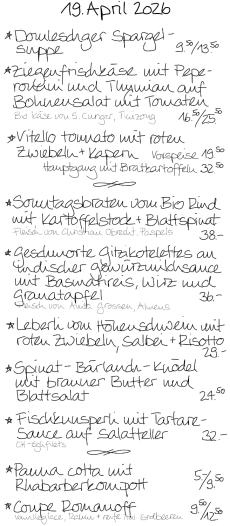 19. April 2026
* Domleschger Spargel-
suppe 9.50/13.50
* Ziegenfrischkäse mit Pepe-
roncini und Thymian auf
Bohnensalat mit Tomaten
Bio Käse von S. 16.50/25.50
* Vitello tonnato mit roten
Zwiebeln + Kapern Vorspeise 19.50
Hauptgang mit Bratkartoffeln 32.50
* Sonntagsbraten vom Bio Rind
mit Kartoffelstock + Blattspinat
Fleisch von Christian Obrecht, Paspels 38.-
* Geschmorte Gitzikotelettes an
indischer Gewürzmilchsauce
mit Basmatireis, Wirz und
Granatapfel 36.-
Fleisch von
* Leberli vom Höhenschwein mit
roten Zwiebeln, Salbei + Risotto
29.-
* Spinat-Bärlauch-Knödel
mit brauner Butter und
Blattsalat 24.50
* Fischknusperli mit Tartare-
Sauce auf Salatteller 32.-
CH-Eglifilets
* Panna cotta mit
Rhabarberkompott 5.-/9.50
* Coupe Romanoff 9.50/12.50
Vanilleglace, Rahm + Erdbeeren